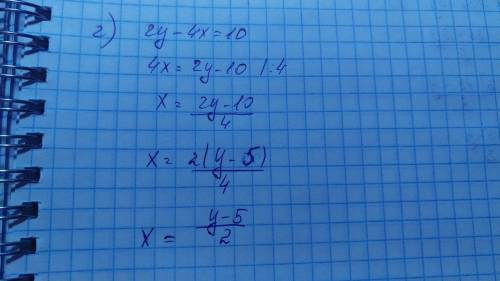 г) 2y - 4x = 10
4x = 2y - 10 | :4
x = (2y - 10)/4
x = 2(y - 5)/4
x = (y - 5)/2